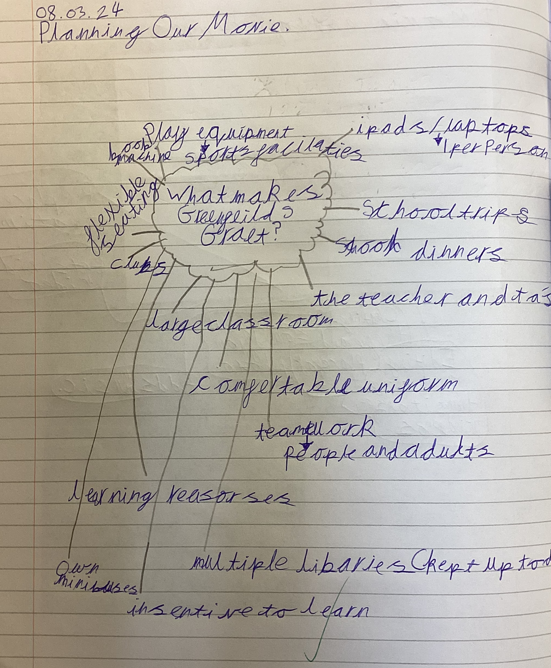 08.03.24
Planning Our Movie.
Play equipment
book
machine
sports facilaties
ipads/laptops
1 per person
flexible
seating
What makes
Greenfeilds
Graet?
School trips
dinners
clubs
the teacher and ta's
large classroom
comfertable uniform
teamwork
people and adults
learning reasorses
own
minibuses
multiple libaries (kept up to d
insentive to learn